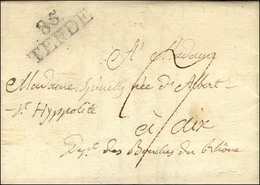 85
TENDE
A Madame
Madame Spinelly née d'Albert
St Hyppolite
à aix
Dept des Bouches du Rhône